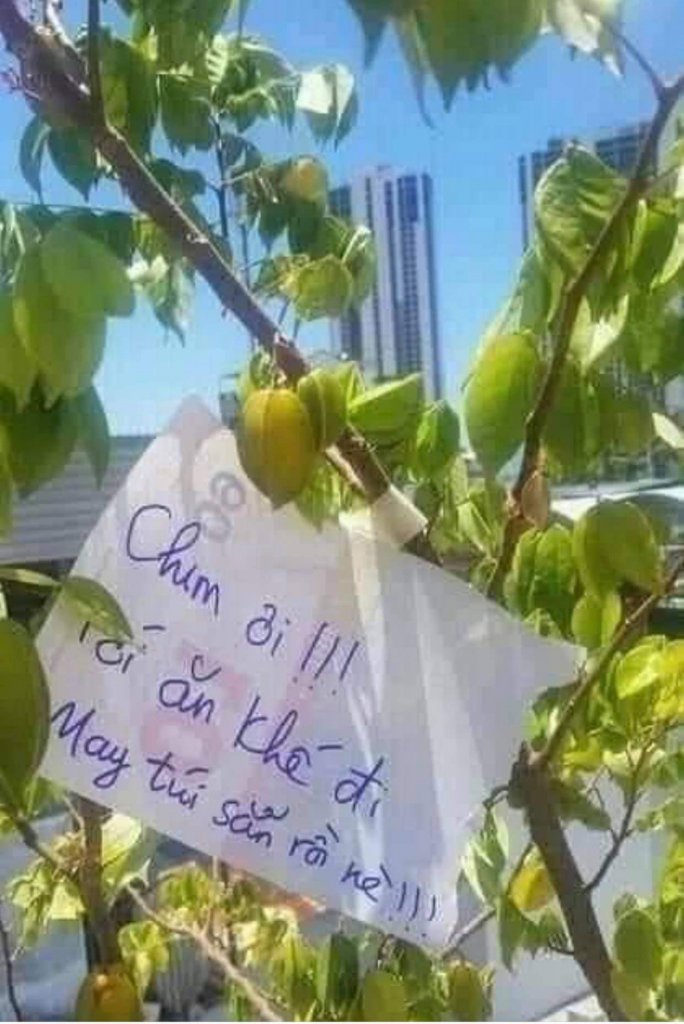 Chim ơi !!!
Tới ăn khế đi
May túi sẵn rồi nè !!!